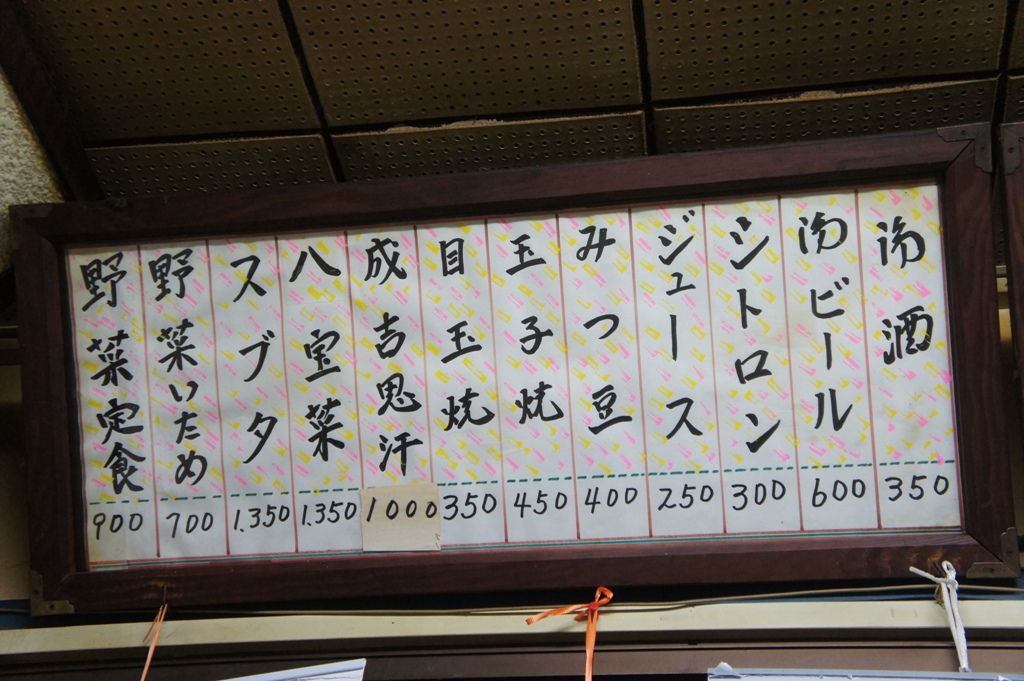 御酒 350
御ビール 600
シトロン 300
ジュース 250
みつ豆 400
玉子焼 450
目玉焼 350
成吉思汗 1000
八宝菜 1.350
スブタ 1.350
野菜いため 700
野菜定食 900